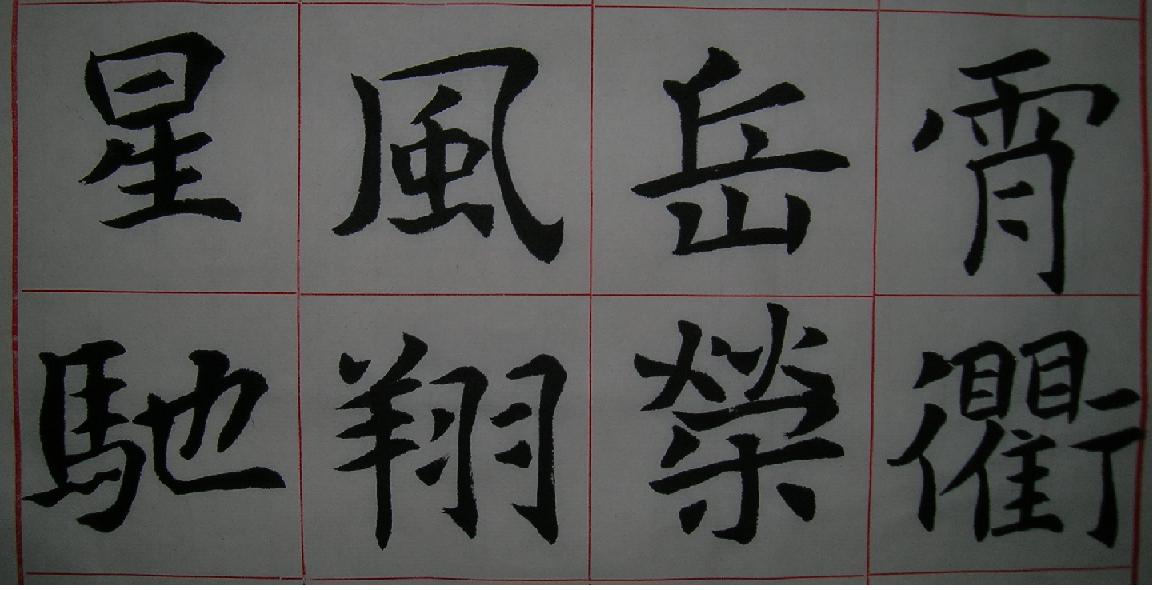 霄衢
岳榮
風翔
星馳